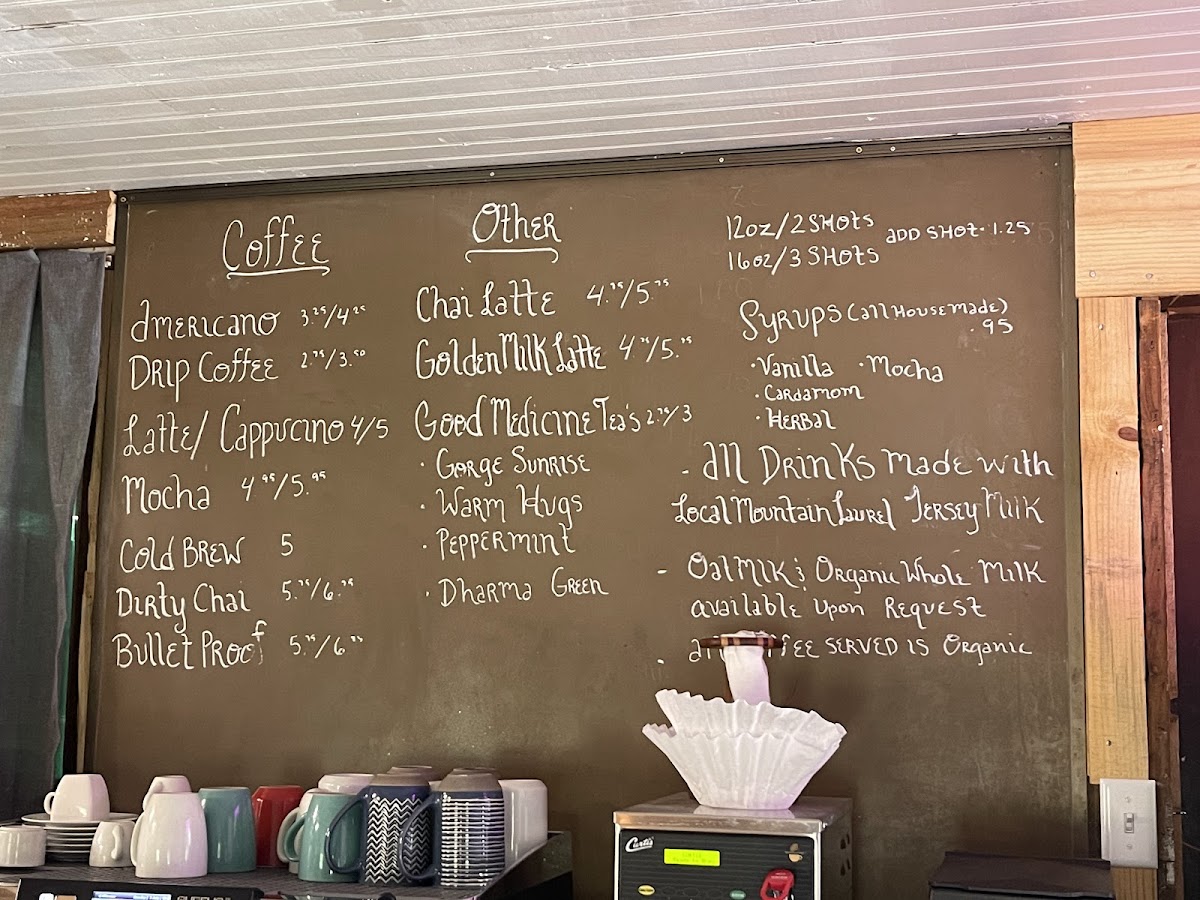 Coffee
Americano 3.25/4.25
Drip Coffee 2.75/3.50
Latte/Cappucino 4/5
Mocha 4.95/5.95
Cold Brew 5
Dirty Chai 5.75/6.75
Bullet Proof 5.75/6.75
Other
Chai Latte 4.75/5.75
Golden Milk Latte 4.75/5.75
Good Medicine Tea's 2.75/3
· Gorge Sunrise
· Warm Hugs
· Peppermint
· Dharma Green
12oz/2 SHOTS
16oz/3 SHOTS
ADD SHOT· 1.25
Syrups (all House made)
.95
· Vanilla · Mocha
· Cardamom
· Herbal
- All Drinks made with
Local Mountain Laurel Jersey Milk
- Oat Mlk & Organic Whole Milk
available upon Request
- served is Organic
Curtis